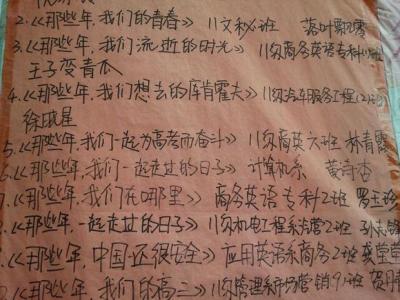 2.《那些年,我们的青春》 11文秘班 落叶飘零
3.《那些年,我们流逝的时光》 11级商务英语专科
王子变青瓜
4.《那些年,我们想去的库肯霍夫》 11级汽车服务工程(2)
徐晓星
5.《那些年,我们一起为高考而奋斗》 11级商英六班 林青霞
6.《那些年,我们一起走过的日子》 计算机系 黄
《那些年,我们在哪里》 商务英语专科2班 罗玉珍
《那些年,一起走过的日子》 11级机电工程系 2班 孙
《那些年,中国还很安全》 应用英语系商务2班 龚莹莹
《那些年,我们的高三》 11级管理系市场营销9班 贺